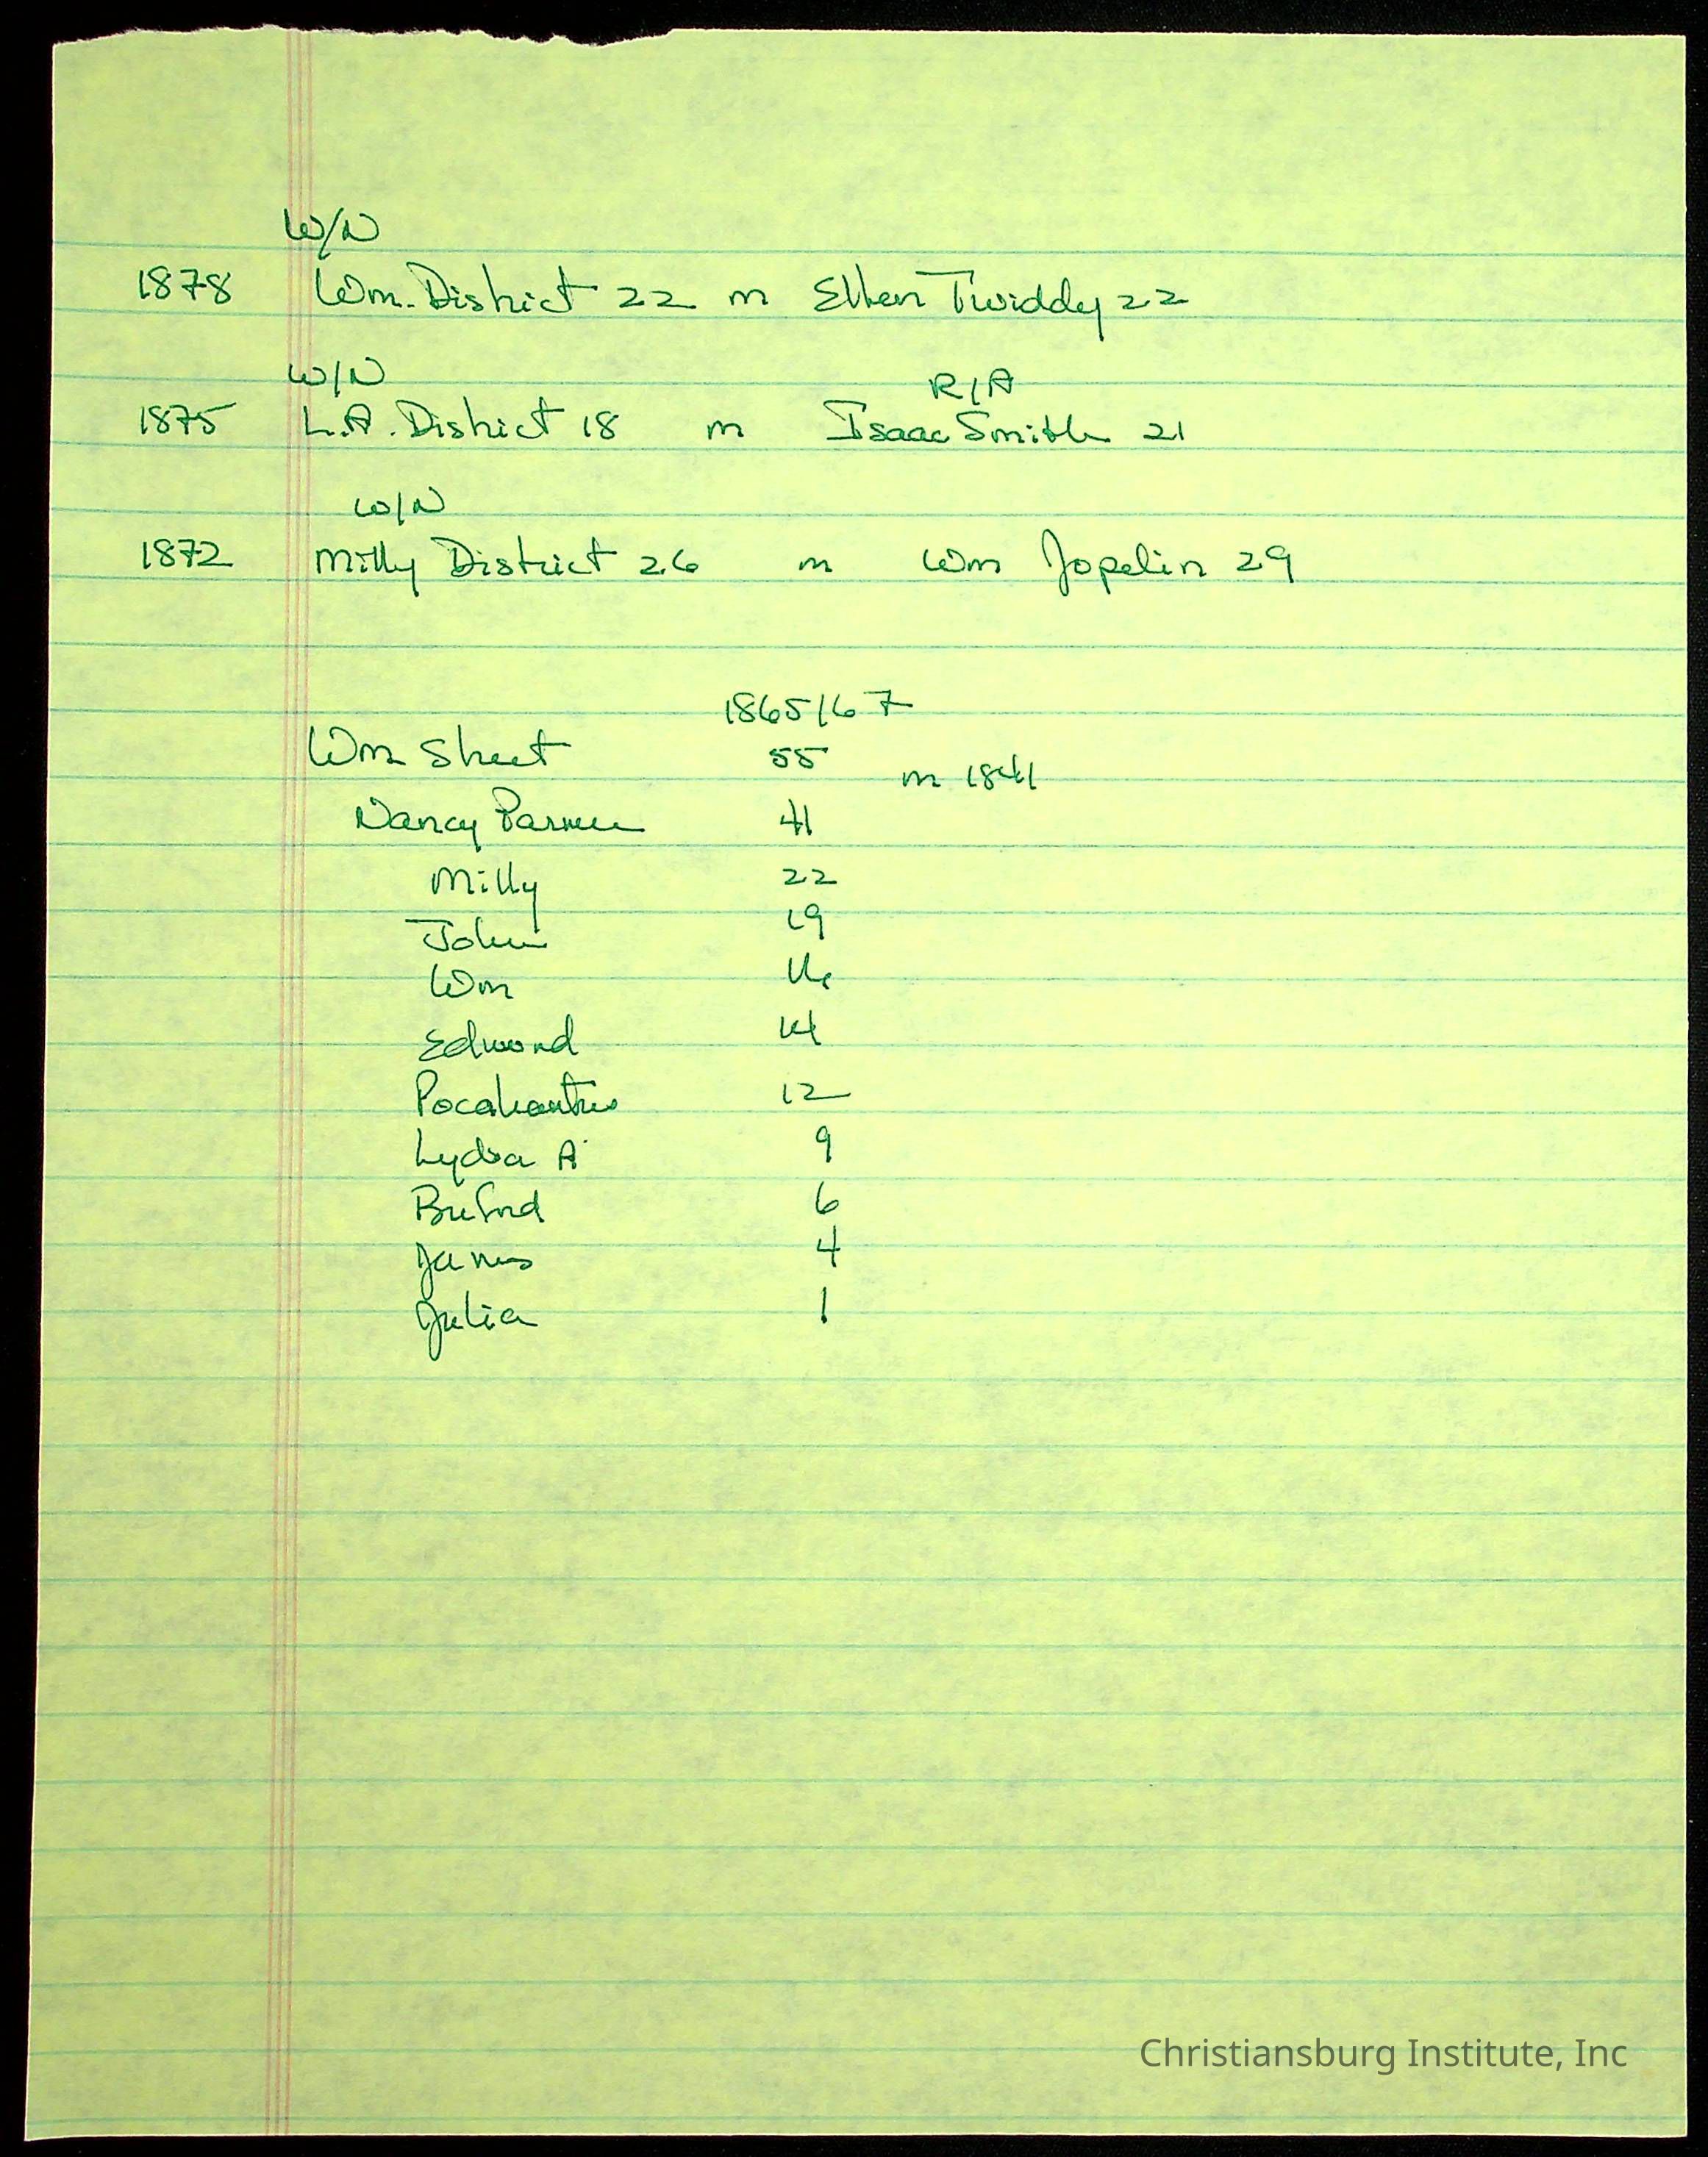 W/N
1878 Wm. District 22 m Ellen Twiddy 22
W/N R/A
1875 L.A. District 18 m Isaac Smith 21
W/N
1872 Milly District 26 m Wm Jopelin 29
1865/67
Wm Street 55 m 1841
Nancy 41
Milly 22
John 19
Wm 16
Edmond 14
Pocahontus 12
Lydia A 9
Buford 6
James 4
Julia 1
Christiansburg Institute, Inc